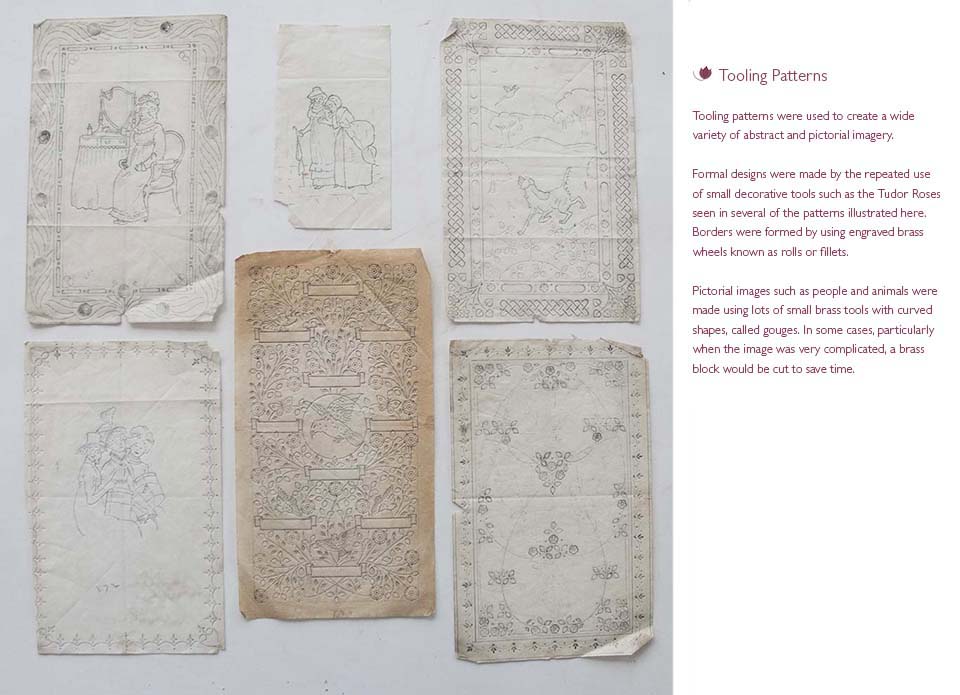 Tooling Patterns
Tooling patterns were used to create a wide
variety of abstract and pictorial imagery.
Formal designs were made by the repeated use
of small decorative tools such as the Tudor Roses
seen in several of the patterns illustrated here.
Borders were formed by using engraved brass
wheels known as rolls or fillets.
Pictorial images such as people and animals were
made using lots of small brass tools with curved
shapes, called gouges. In some cases, particularly
when the image was very complicated, a brass
block would be cut to save time.